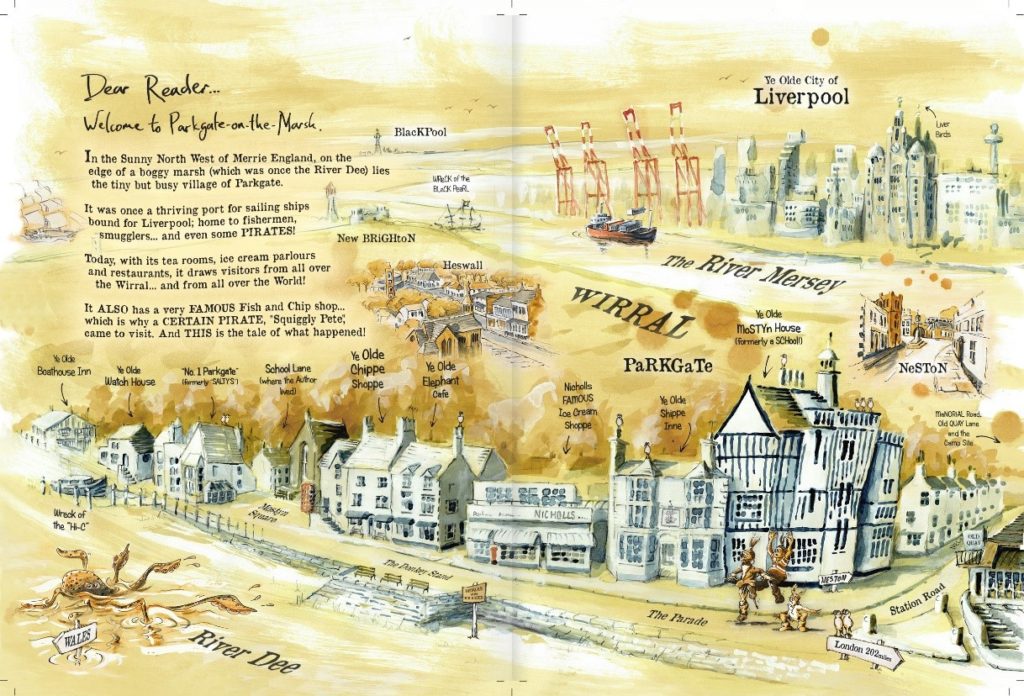 Dear Reader...
Welcome to Parkgate-on-the-Marsh.
In the Sunny North West of Merrie England, on the
edge of a boggy marsh (which was once the River Dee) lies
the tiny but busy village of Parkgate.
It was once a thriving port for sailing ships
bound for Liverpool; home to fishermen,
smugglers... and even some PIRATES!
Today, with its tea rooms, ice cream parlours
and restaurants, it draws visitors from all over
the Wirral... and from all over the World!
It ALSO has a very FAMOUS Fish and Chip shop...
which is why a CERTAIN PIRATE, 'Squiggly Pete',
came to visit. And THIS is the tale of what happened!
BlacKPool
WReCK of the
BLaCK PeaRL
New BRiGHtoN
Heswall
Ye Olde City of
Liverpool
Liver
Birds
The River Mersey
WIRRAL
PaRKGaTe
Ye Olde
MoSTYn House
(formerly a SCHool!)
NeSToN
MaNORIAL Road,
Old QUAY Lane
and the
Camp Site
Ye Olde
Boathouse Inn
Ye Olde
Watch House
"No. 1 Parkgate"
(formerly "SALTYS")
School Lane
(where the Author
lived)
Ye Olde
Chippe
Shoppe
Ye Olde
Elephant
Cafe
Nicholls
FAMOUS
Ice Cream
Shoppe
Ye Olde
Shippe
Inne
Wreck of
the "Hi-C"
Mostyn
Square
NICHOLLS
The Donkey Stand
The Parade
NESTON
Station Road
OLD
QUAY
London 202 miles
WALES
River Dee